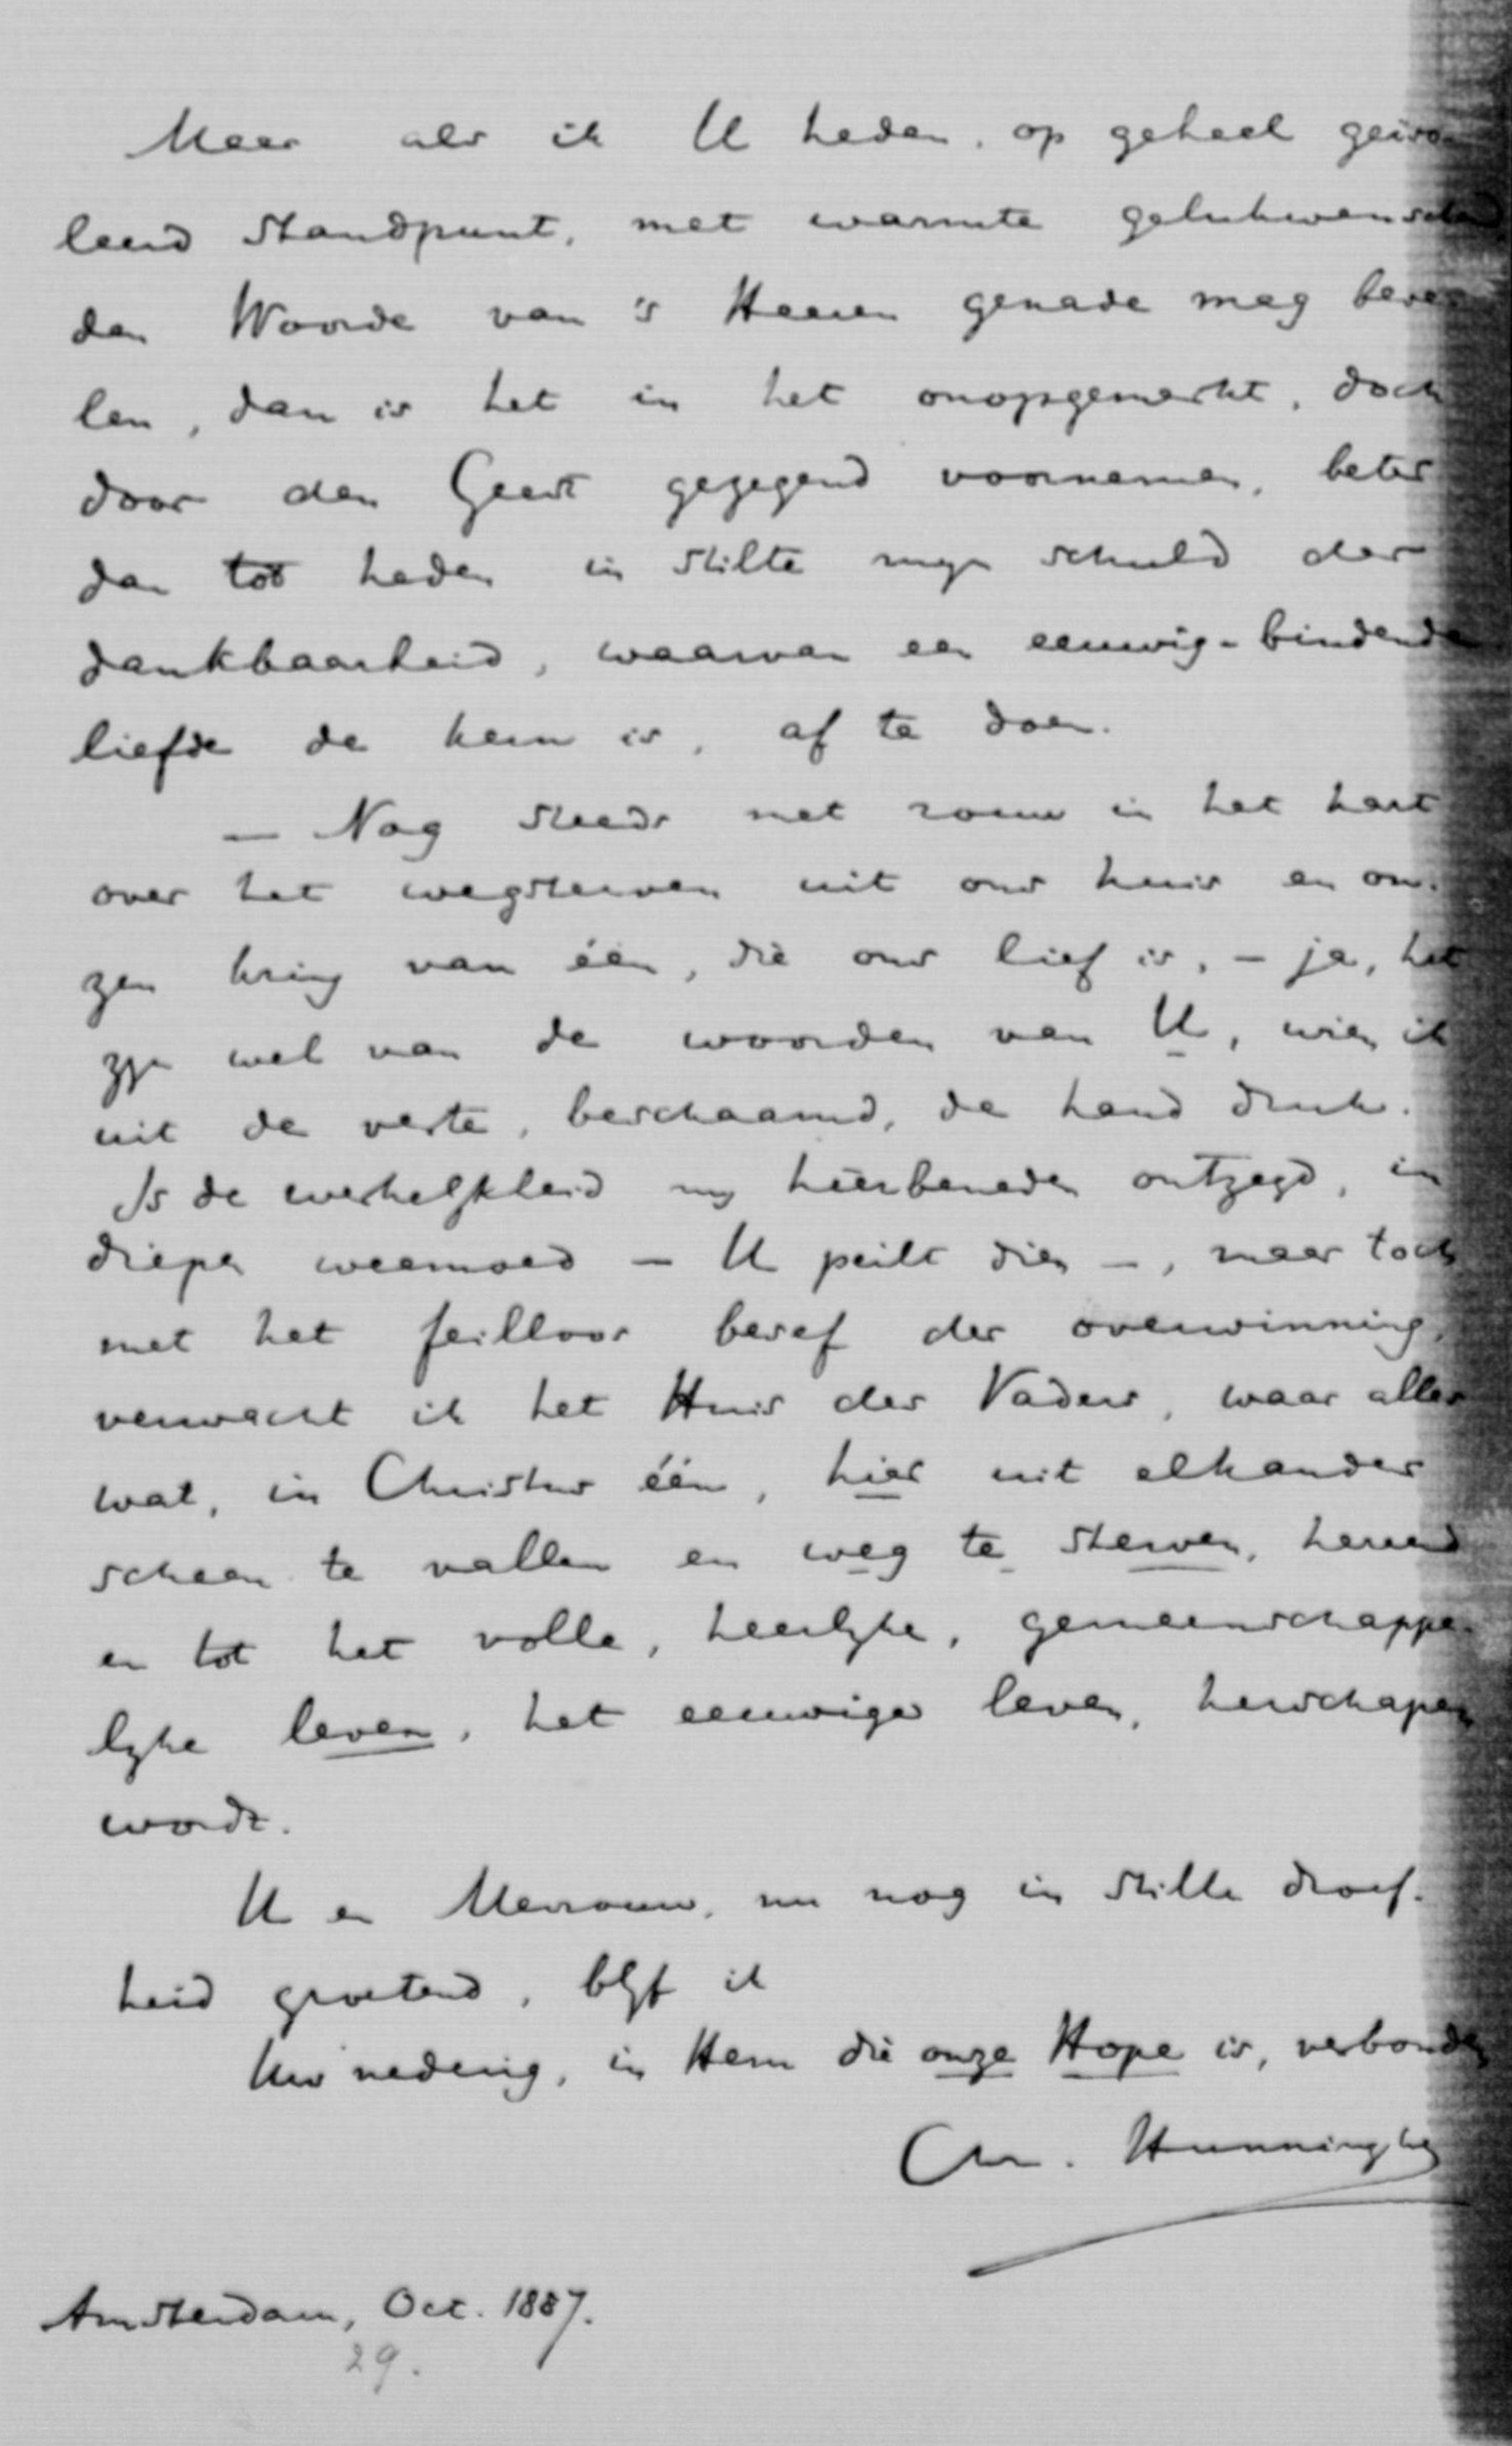 Maar als ik U heden, op geheel geïso-
leerd standpunt, met warmte gelukwenschend
den Woorde van 's Heeren genade mag beve-
len, dan is het in het onopgemerkt, doch
door den Geest gezegend voornemen, beter
dan tot heden in stilte mijn schuld der
dankbaarheid, waarvan een eeuwig-bindende
liefde de kern is, af te doen.
— Nog steeds met rouw in het hart
over het wegsterven uit ons huis en on-
zen kring van één, die ons lief is, – ja, het
zijn wel van de woorden van U, wien ik
uit de verte, beschaamd, de hand druk.
Is de werkelijkheid mij hierbeneden ontzegd, in
diepen weemoed – U peilt dien –, maar toch
met het feilloos besef der overwinning,
verwacht ik het Huis des Vaders, waar alles
wat, in Christus één, hier uit elkander
scheen te vallen en weg te sterven, hereend
en tot het volle, heerlijke, gemeenschappe-
lijke leven, het eeuwige leven, herschapen
wordt.
U en Mevrouw, nu nog in stille droef-
heid groetend, blijf ik
Uw nederig, in Hem die onze Hope is, verbonden
Chr. Hunningher
Amsterdam, Oct. 1887.
29.